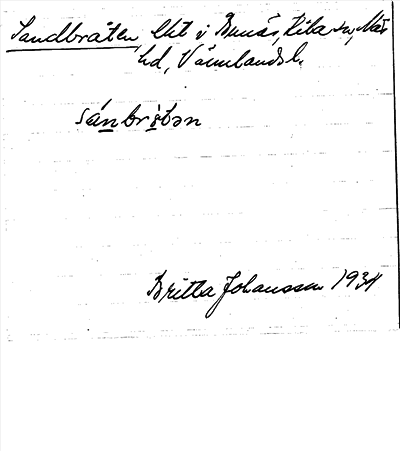 Sandbråten lht i Bunäs, Råda sn, Näs
hd, Värmlands l.
sánbråtən
Britta Johansson 1934